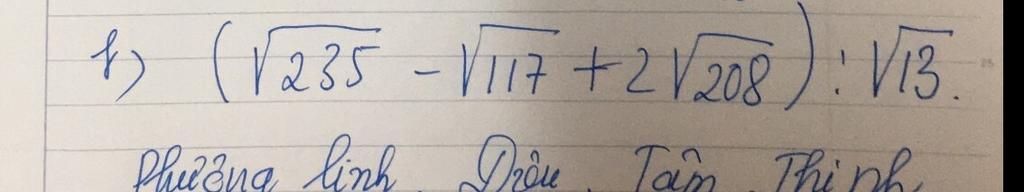 f) (√235 - √117 + 2√208) : √13.
Phương linh, Diệu, Tâm, Thịnh